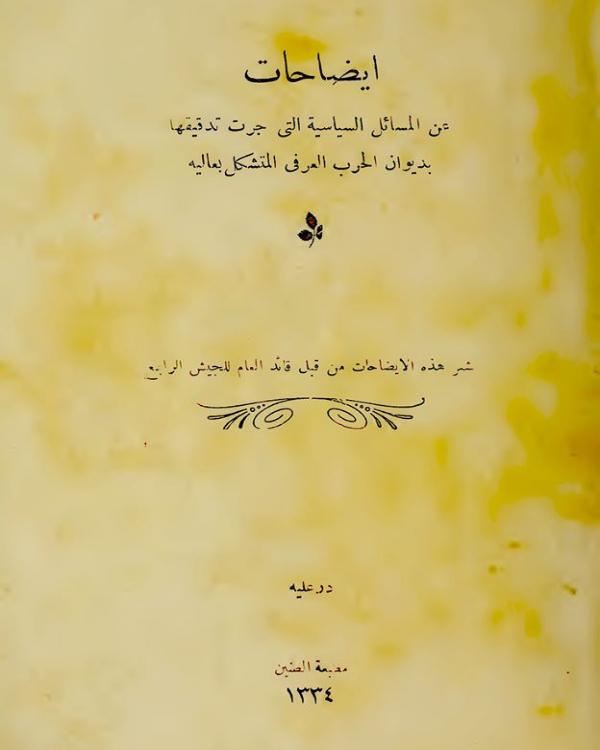 ايضاحات
عن المسائل السياسية التى جرت تدقيقها
بديوان الحرب العرفى المتشكل بعاليه
نشر هذه الايضاحات من قبل قائد العام للجيش الرابع
در عليه
مطبعة الطنين
١٣٣٤